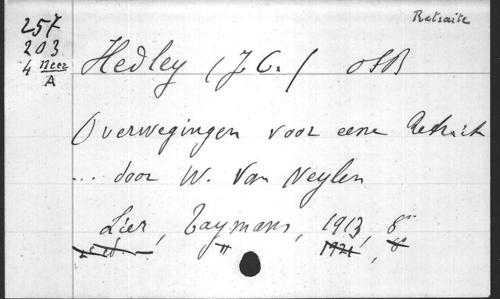 Retraite
257
203
4 Meer
A
Hedley (J. C.) OSB
Overwegingen voor eene Retrait
... door W. Van Neylen
Lier, Taymans, 1913, 8°
2e ed. 1921, 8°